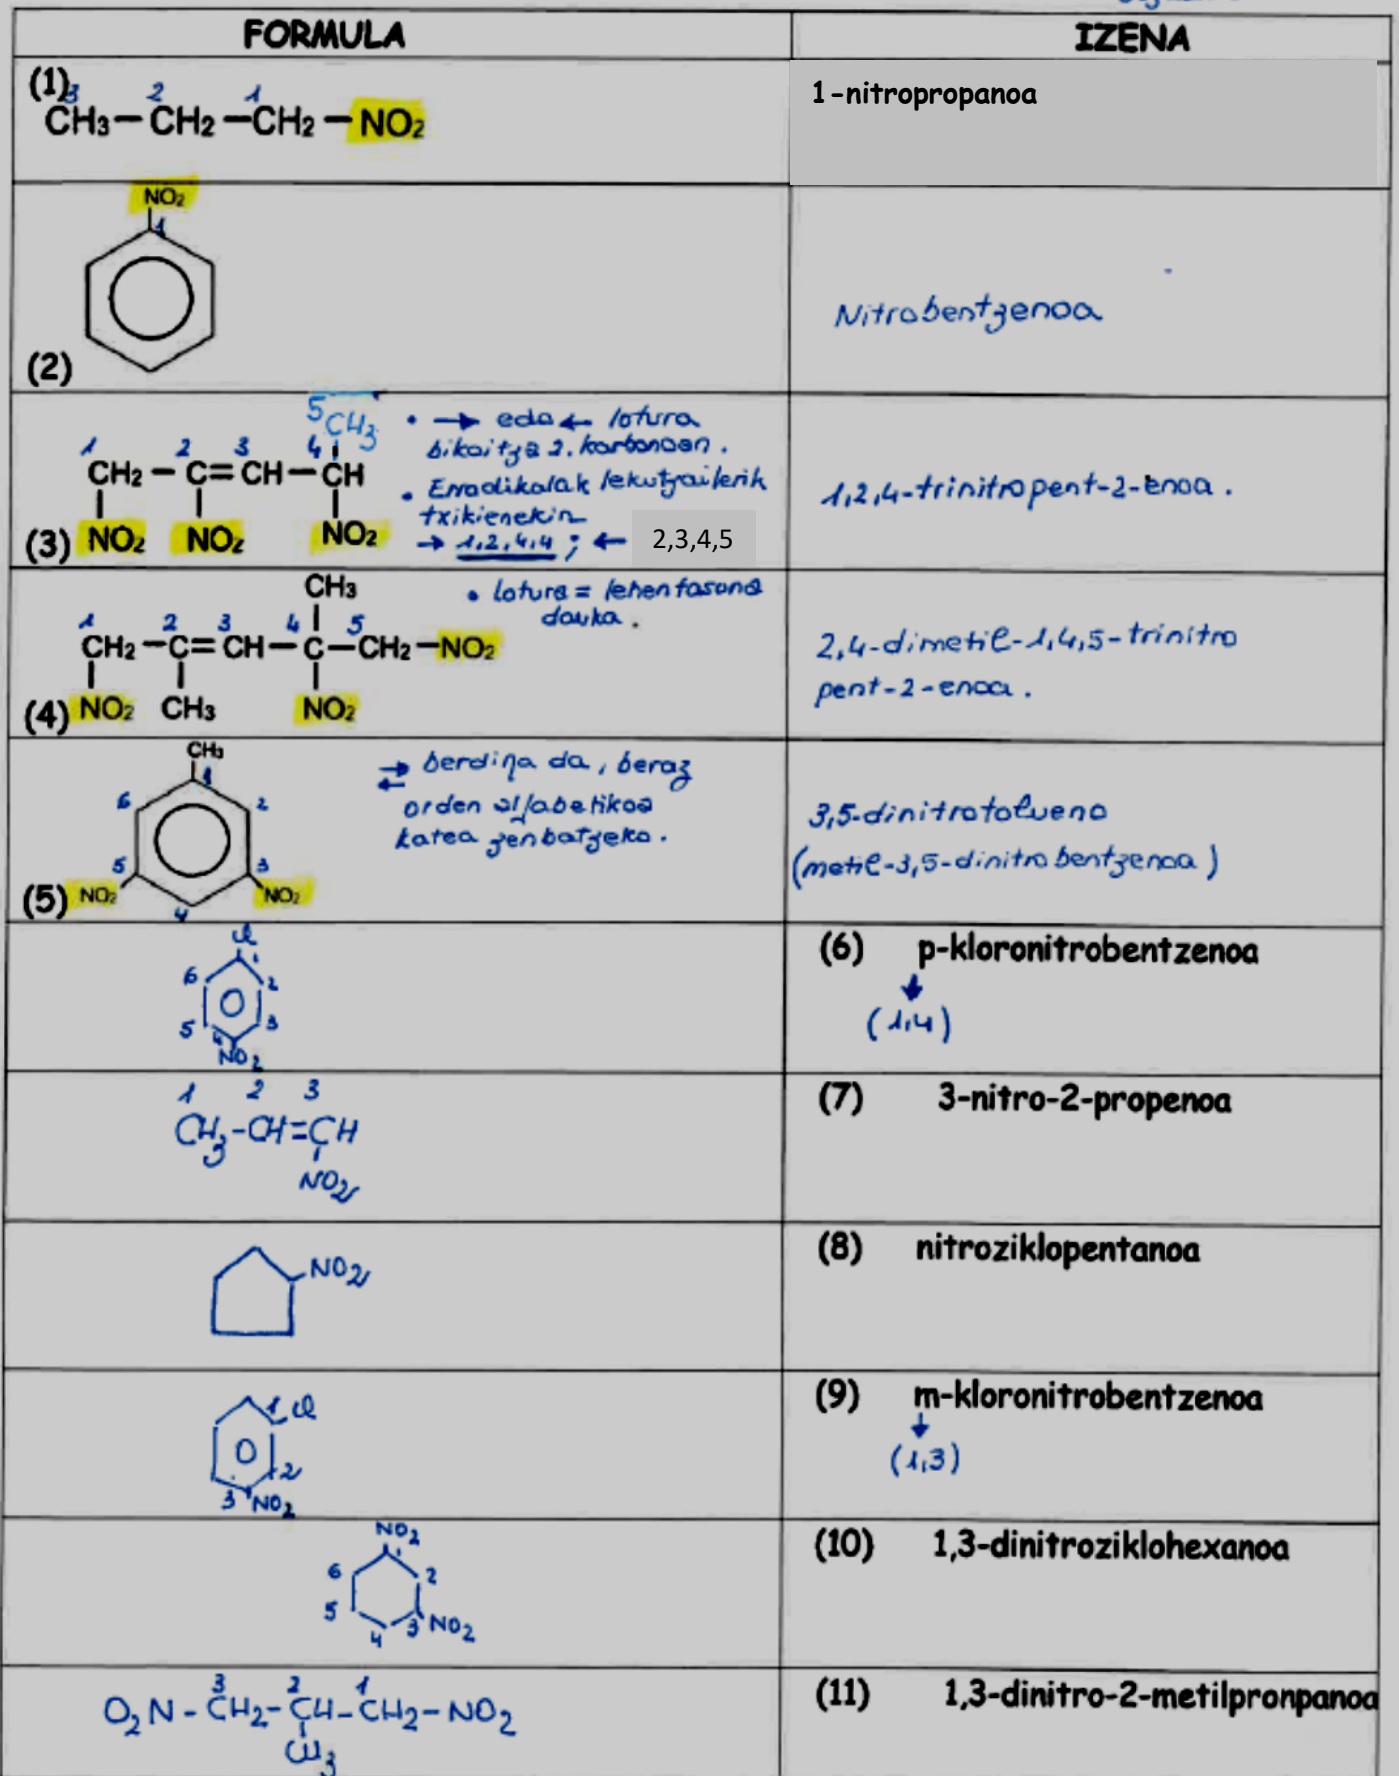 FORMULA
IZENA
(1)
3 2 1
CH₃—CH₂—CH₂—NO₂
1-nitropropanoa
NO₂
1
(2)
Nitrobentzenoa
5 CH₃
1 2 3 4
CH₂—C=CH—CH
(3) NO₂ NO₂ NO₂
• → edo ← lotura
bikoitza 2. karbonoan.
• Erradikalak lekutzailerik
txikienekin
→ 1,2,4,4 ; ← 2,3,4,5
1,2,4-trinitropent-2-enoa.
CH₃
1 2 3 4 5
CH₂—C=CH—C—CH₂—NO₂
(4) NO₂ CH₃ NO₂
• lotura = lehentasuna
dauka.
2,4-dimetil-1,4,5-trinitro
pent-2-enoa.
CH₃
1
6 2
5 3
NO₂ NO₂
4
(5)
→ ← berdiña da, beraz
orden alfabetikoa
katea zenbatzeko.
3,5-dinitrotolueno
(metil-3,5-dinitrobentzenoa)
Cl
1
6 2
5 3
4
NO₂
(6) p-kloronitrobentzenoa
(1,4)
1 2 3
CH₃-CH=CH
NO₂
(7) 3-nitro-2-propenoa
NO₂
(8) nitroziklopentanoa
1 Cl
2
3 NO₂
(9) m-kloronitrobentzenoa
(1,3)
NO₂
1
6 2
5 3 NO₂
4
(10) 1,3-dinitroziklohexanoa
3 2 1
O₂N-CH₂-CH-CH₂-NO₂
CH₃
(11) 1,3-dinitro-2-metilpronpanoa